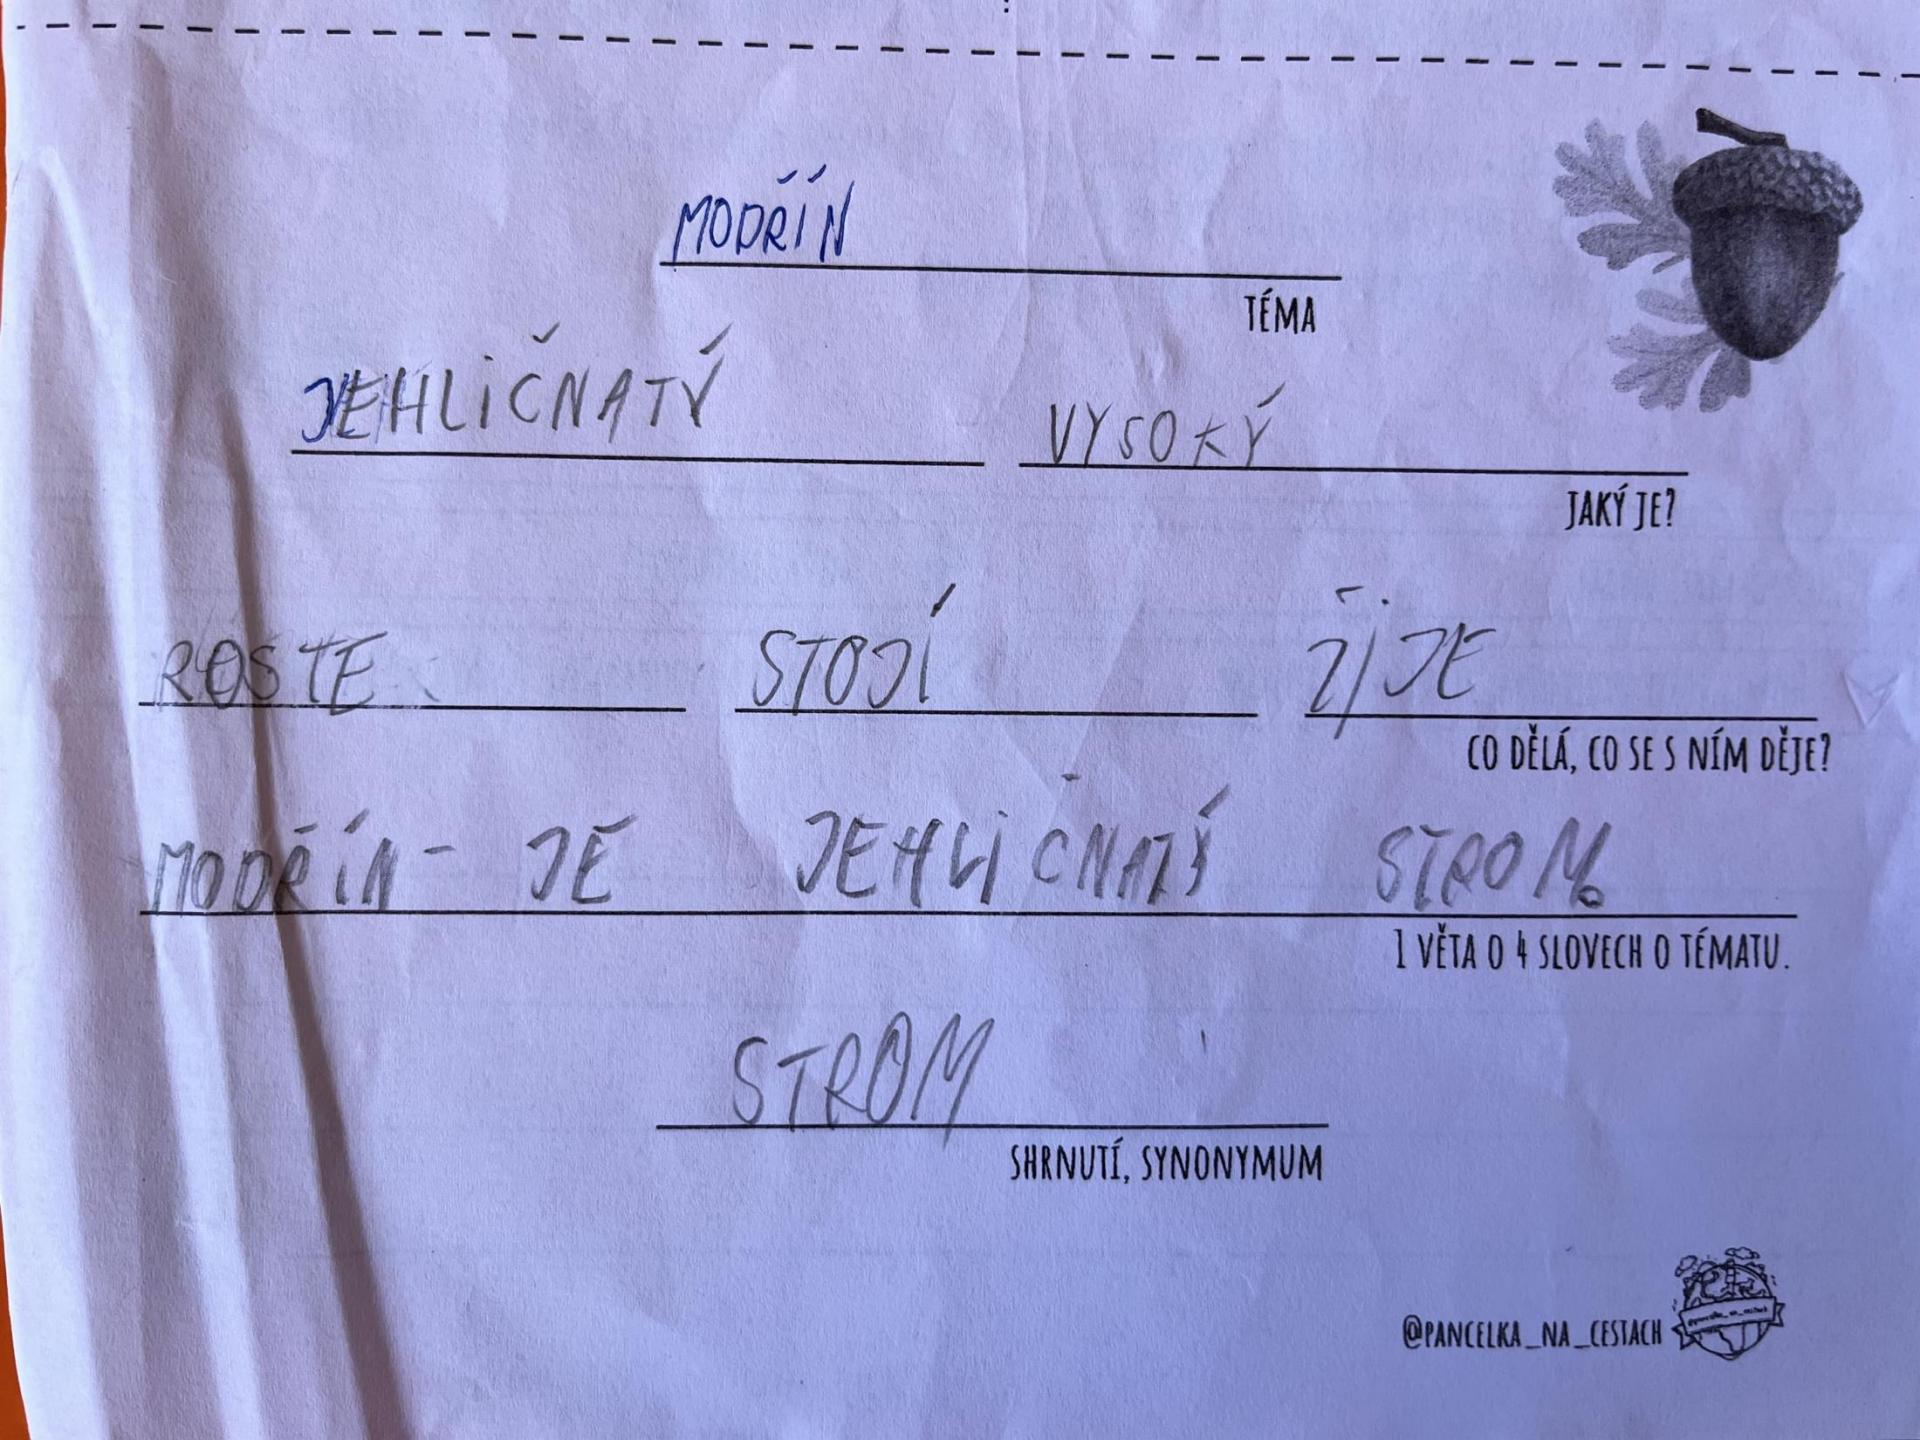 MODŘÍN
TÉMA
JEHLIČNATÝ VYSOKÝ
JAKÝ JE?
ROSTE STOJÍ ŽIJE
CO DĚLÁ, CO SE S NÍM DĚJE?
MODŘÍN - JE JEHLIČNATÝ STROM.
1 VĚTA O 4 SLOVECH O TÉMATU.
STROM
SHRNUTÍ, SYNONYMUM
@PANCELKA_NA_CESTACH